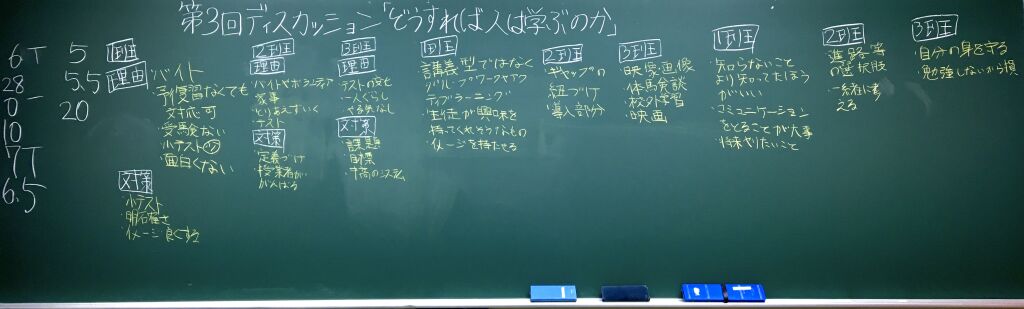 第3回ディスカッション「どうすれば人は学ぶのか」
6T
28
0
10
7T
6.5
5
5.5
20
1班
理由
・バイト
・予復習なくても
対応可
・受験ない
・小テスト
・面白くない
対策
・小テスト
・明石極さ
・イメージ良くする
2班
理由
・バイトやボランティア
・家事
・とりあえずいく
・テスト
対策
・定着づけ
・授業者が
がんばる
3班
理由
・テストの有無
・一人ぐらし
・やる気なし
対策
・課題
・目標
1班
・講義型ではなく
グループワークやアク
ティブラーニング
・生徒が興味を
持ってくれそうなもの
・イメージを持たせる
2班
・ギャップの
紐づけ
・導入部分
3班
・映像、画像
・体験会談
・校外学習
・映画
1班
・知らないこと
より知ってたほう
がいい
・コミュニケーション
をとることが大事
・将来やりたいこと
2班
・進路等
の選択肢
・一緒に考
える
3班
・自分の身を守る
・勉強しないから損